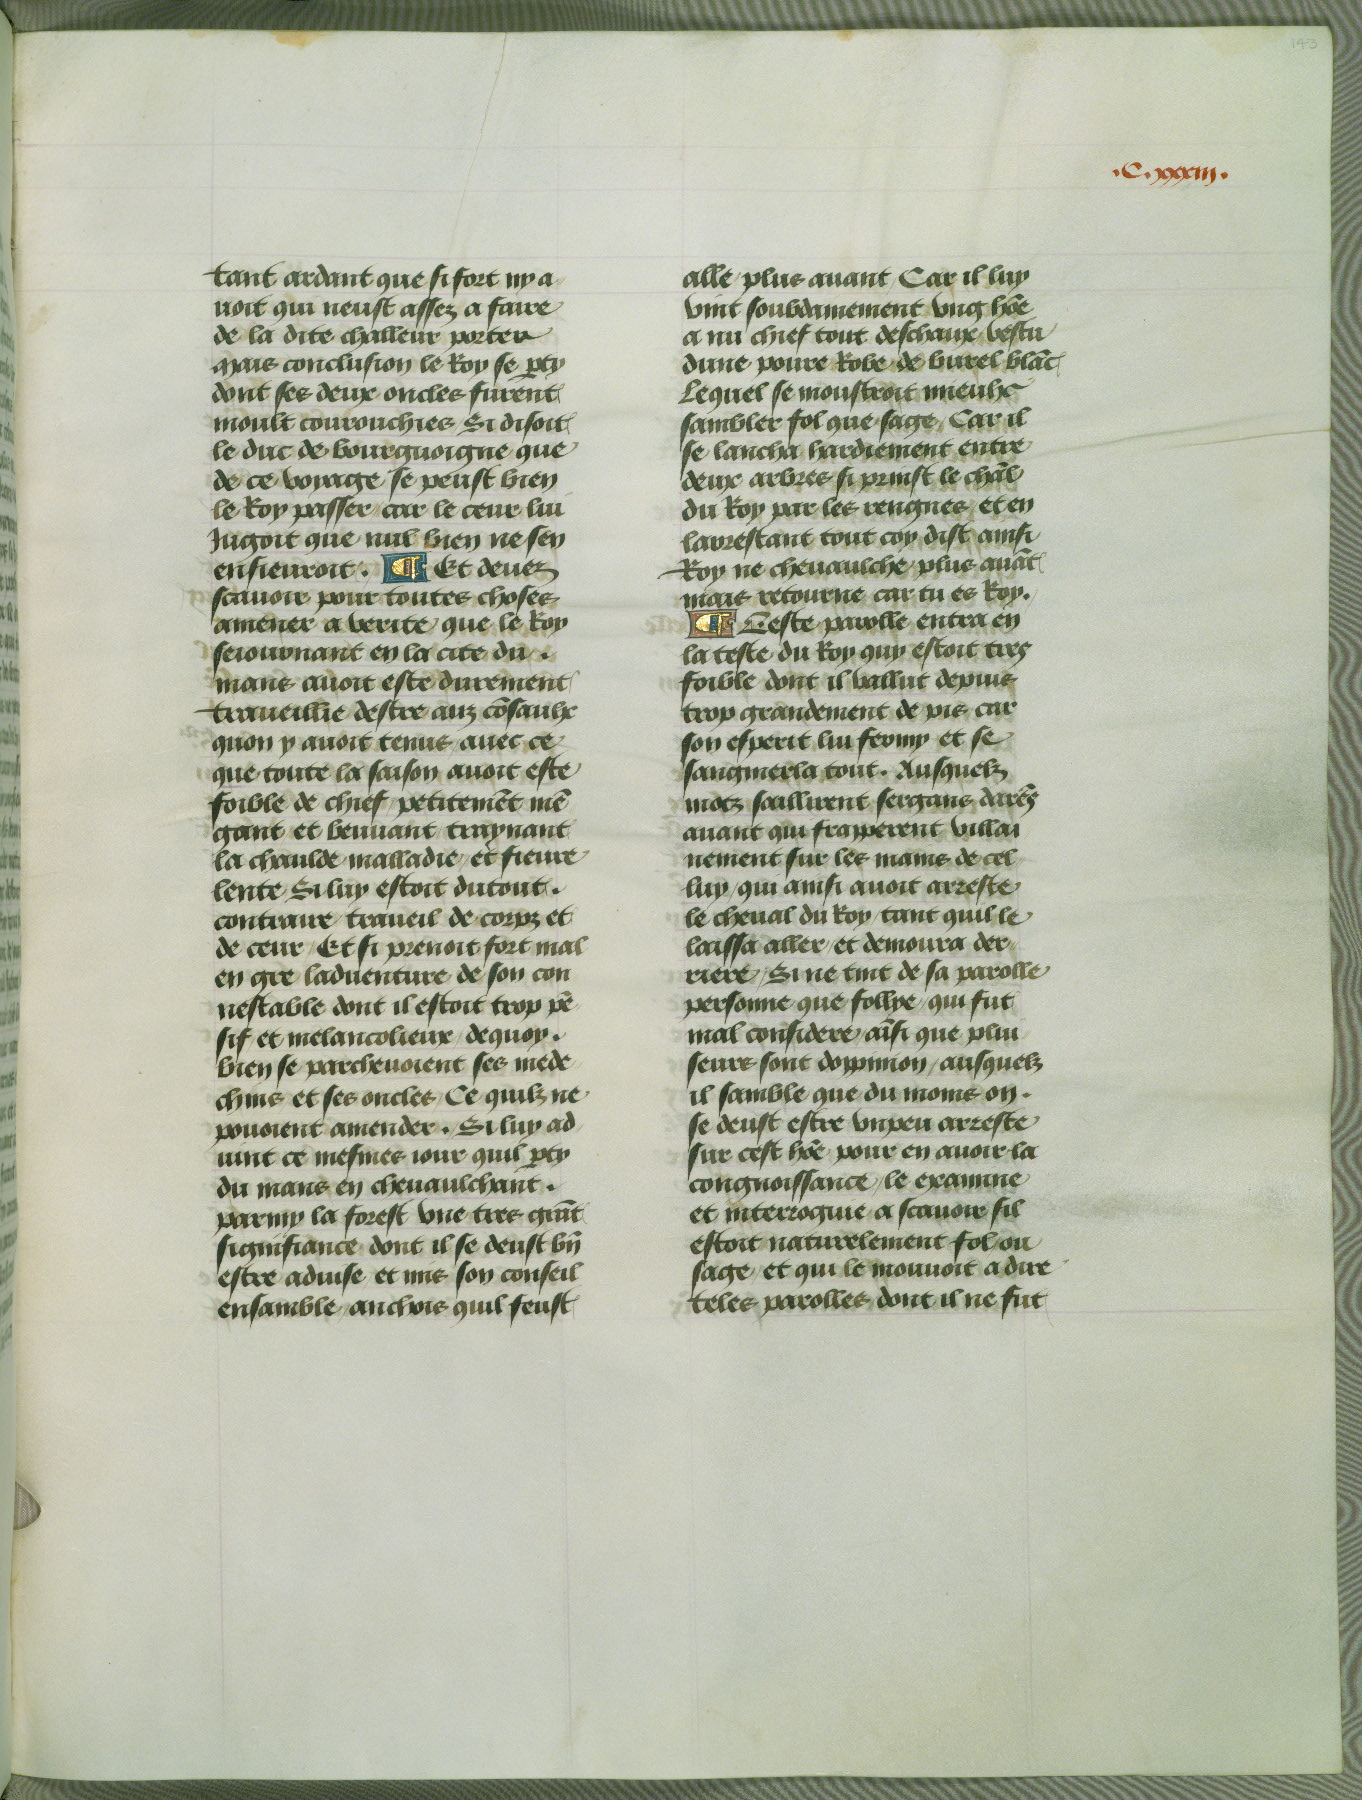 143
.C.xxxiij.
tant ardant que si fort ny a
uoit qui neust assez a faire
de la dite challeur porter
Mais conclusion le Roy se pty
dont ses deux oncles furent
moult courouchies Si disoit
le duc de bourguoigne que
de ce voyage se peust bien
le Roy passer car le ceur lui
Iugoit que nul bien ne sen
ensieuroit . ¶ Et deuez
scauoir pour toutes choses
amener a verite que le Roy
seiournant en la cite du .
mans auoit este durement
traueillie destre auz cõsaulx
quon y auoit tenus auec ce
que toute la saison auoit este
foible de chief petitemẽt mẽ
gant et beuuant traynant
la chaulde malladie et fieure
lente Si luy estoit dutout .
contraire traueil de corpz et
de ceur Et si prenoit fort mal
en gre laduenture de son con
nestable dont il estoit trop pẽ
sif et melancolieux dequoy .
bien se parcheuoient ses mede
chins et ses oncles Ce quilz ne
pouoient amender . Si luy ad
uint ce mesmes iour quil pty
du mans en cheuaulchant .
parmy la forest vne tres grãt
signifiance dont il se deust bñ
estre aduise et mis son conseil
ensamble anchois quil feust
alle plus auant Car il luy
vint soubdainement vng hõe
a nu chief tout deschaux vestu
dune poure Robe de burel blãc
Lequel se moustroit mieulx
sambler fol que sage Car il
se lancha hardiement entre
deux arbres si prinst le chãl
du Roy par les rengnes et en
larrestant tout coy dist ainsi
Roy ne cheuaulche plus auãt
mais retourne car tu es Roy.
¶ Ceste parolle entra en
la teste du Roy quy estoit tres
foible dont il vallut depuis
trop grandement de pis car
son esperit lui fremy et se
sangmerla tout . Ausquelz
motz saillirent sergans darẽs
auant qui frapperent villai
nement sur les mains de cel
luy qui ainsi auoit arreste
le cheual du Roy tant quil le
laissa aller et demoura der
riere Si ne tint de sa parolle
personne que follye qui fut
mal considere aĩsi que plui
seurs sont doppinion ausquelz
il samble que du moins on .
se deust estre vnpeu arreste
sur cest hõe pour en auoir la
congnoissance le examine
et interroguie a scauoir sil
estoit naturelement fol ou
sage et qui le mouuoit a dire
teles parolles dont il ne fut